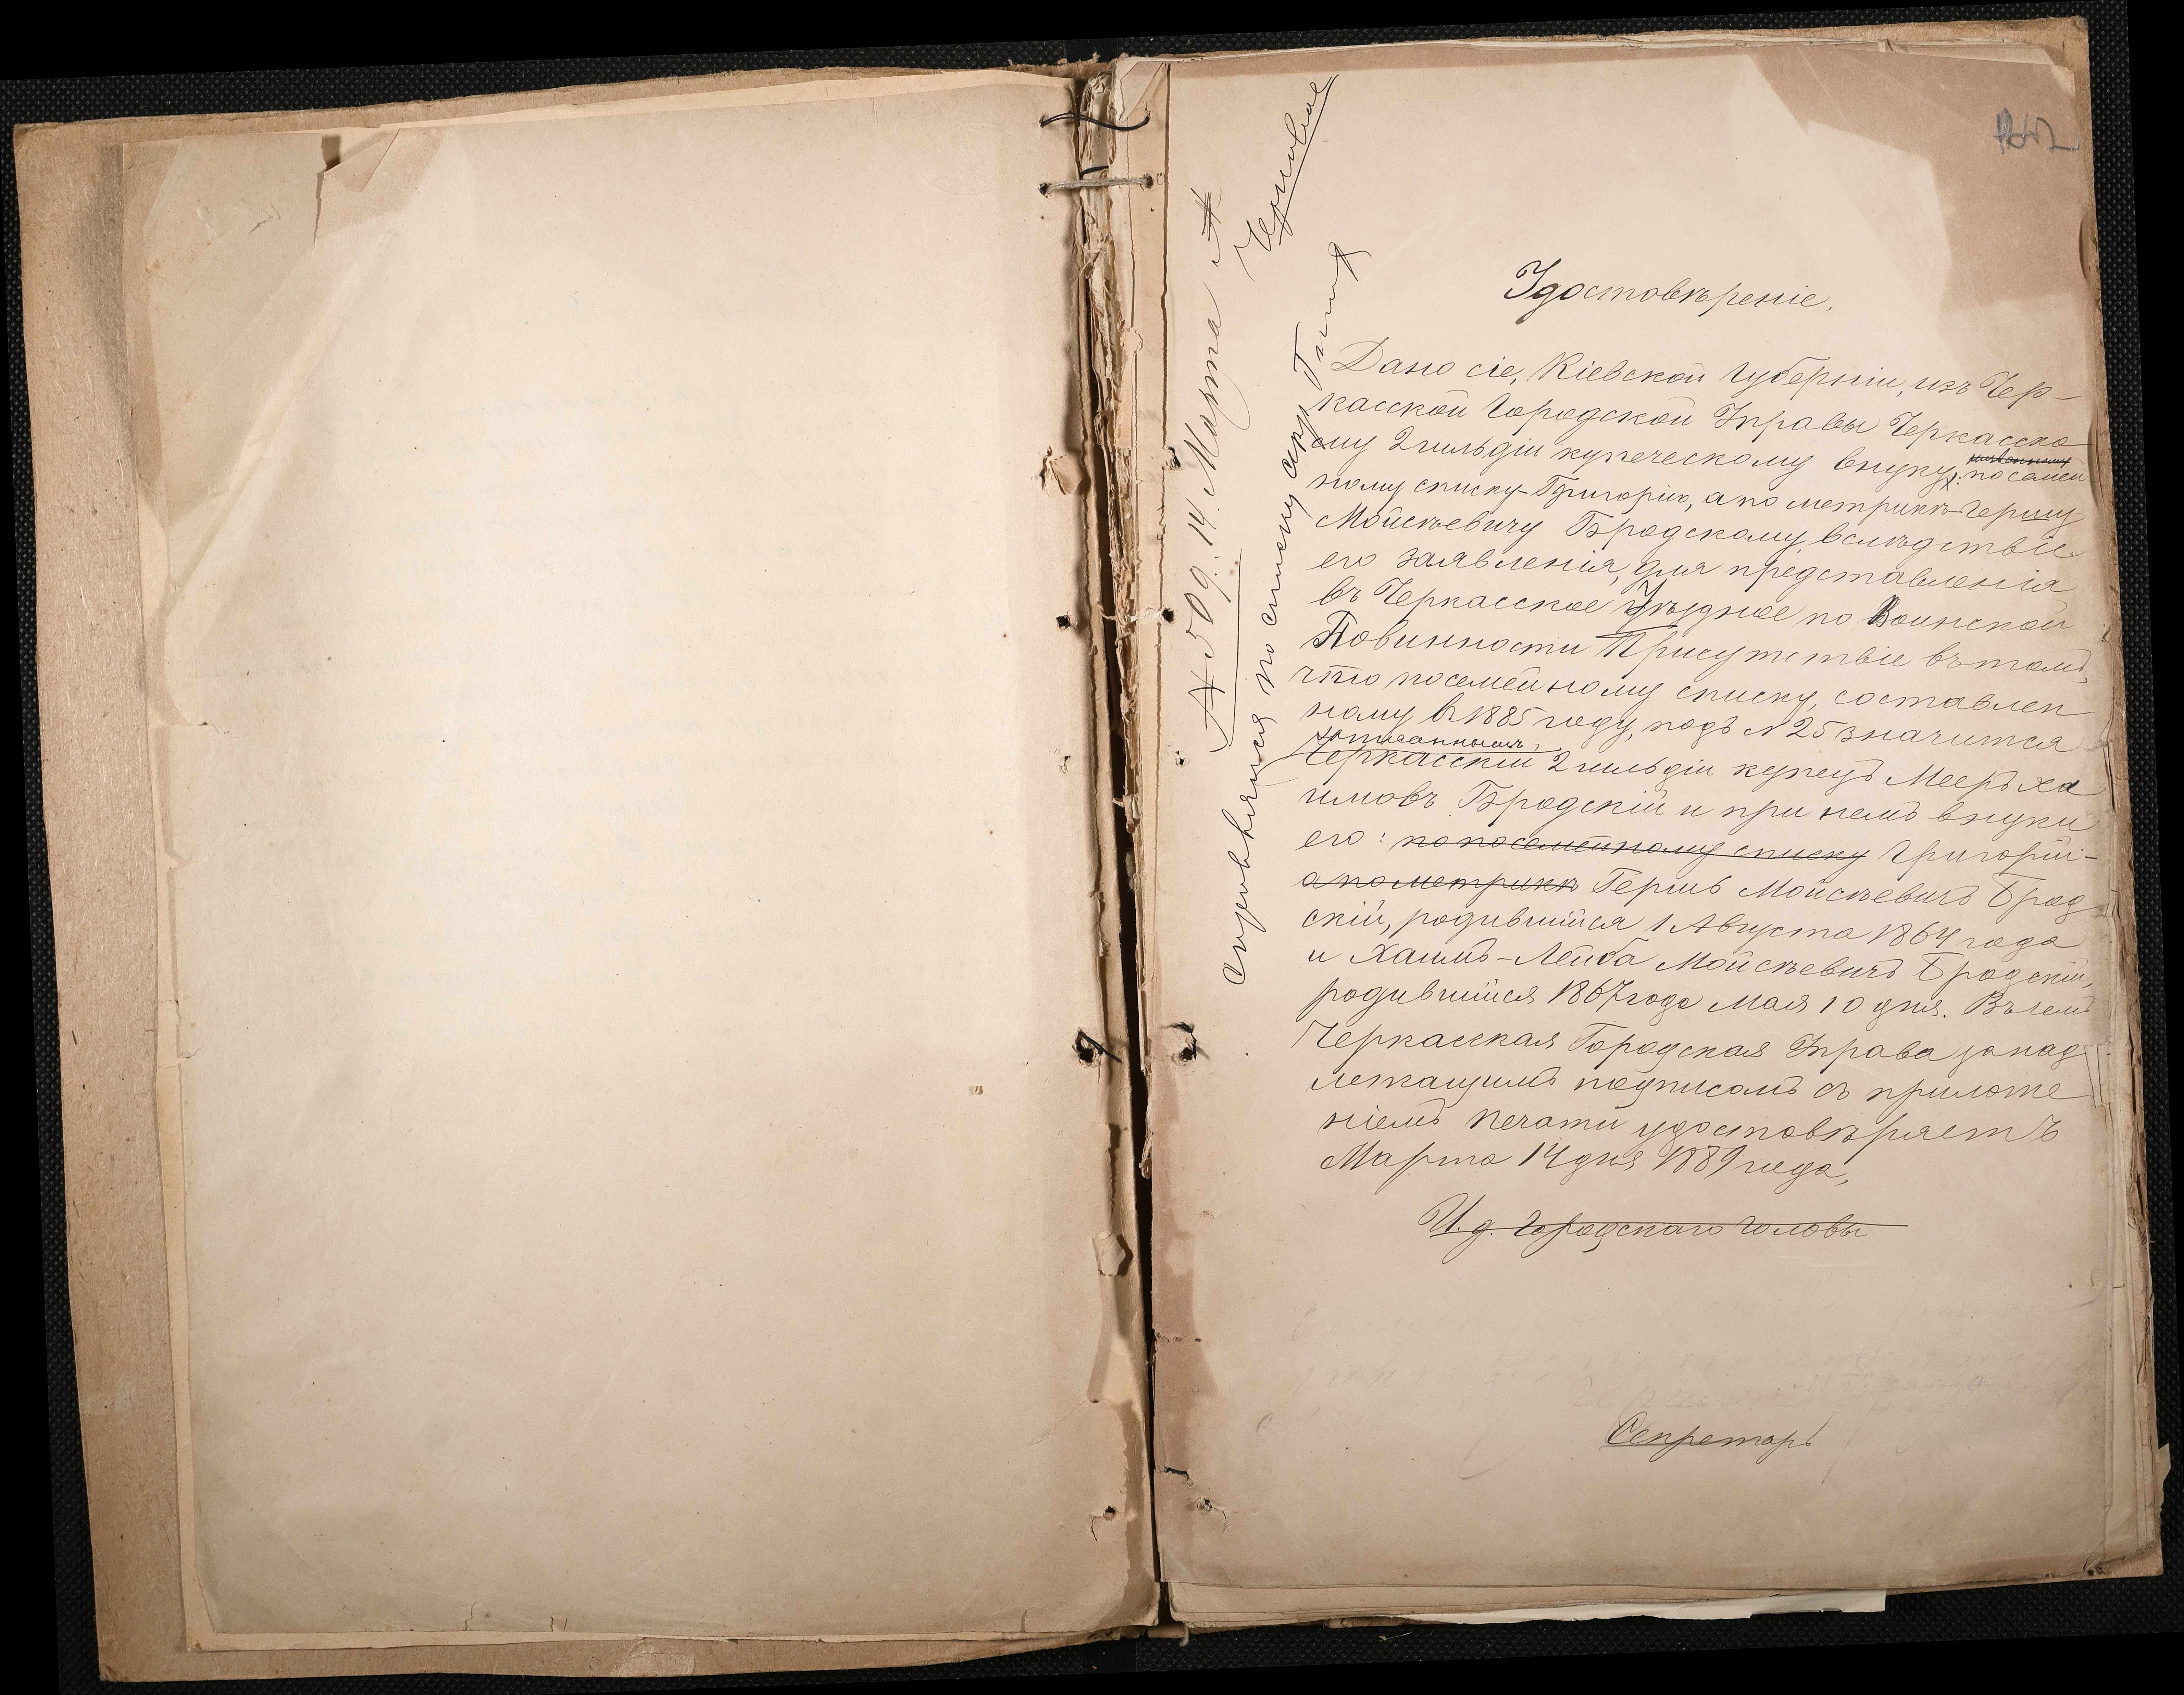 Черновое
№ 509. 14 Марта
по списку
Удостовѣреніе.
Дано сіе, Кіевской губерніи, изъ Чер-
касской Городской Управы Черкасско
му 2 гильдіи купеческому внуку, посемей
ному списку-Григорію, а по метрикѣ-Гершу
Мойсѣевичу Бродскому, вслѣдствіе
его заявленія, для представленія
въ Черкасское Уѣздное по Воинской
Повинности Присутствіе въ томъ,
что посемейному списку, составлен
ному въ 1885 году, подъ № 25 значится
записаннымъ,
Черкасскій 2 гильдіи купецъ Мееръ Ха
имовъ Бродскій и при немъ внуки
его: по посемейному списку Григорій-
а по метрикѣ Гершъ Мойсѣевичъ Брод
скій, родившійся 1 Августа 1864 года
и Хаимъ-Лейба Мойсѣевичъ Бродскій,
родившійся 1867 года Мая 10 дня. Въ чемъ
Черкасская Городская Управа за над
лежащимъ подписомъ съ приложе
ніемъ печати удостовѣряетъ
Марта 14 дня 1889 года,
И. д. Городскаго Головы
Секретарь